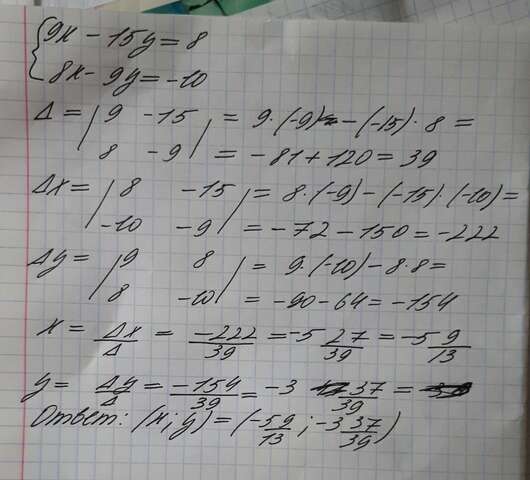 {9x - 15y = 8
8x - 9y = -10
Δ = | 9 -15 | = 9·(-9) - (-15)·8 =
| 8 -9 | = -81 + 120 = 39
Δx = | 8 -15 | = 8·(-9) - (-15)·(-10) =
| -10 -9 | = -72 - 150 = -222
Δy = | 9 8 | = 9·(-10) - 8·8 =
| 8 -10 | = -90 - 64 = -154
x = Δx/Δ = -222/39 = -5 27/39 = -5 9/13
y = Δy/Δ = -154/39 = -3 37/39 =
Ответ: (x; y) = (-5 9/13; -3 37/39)